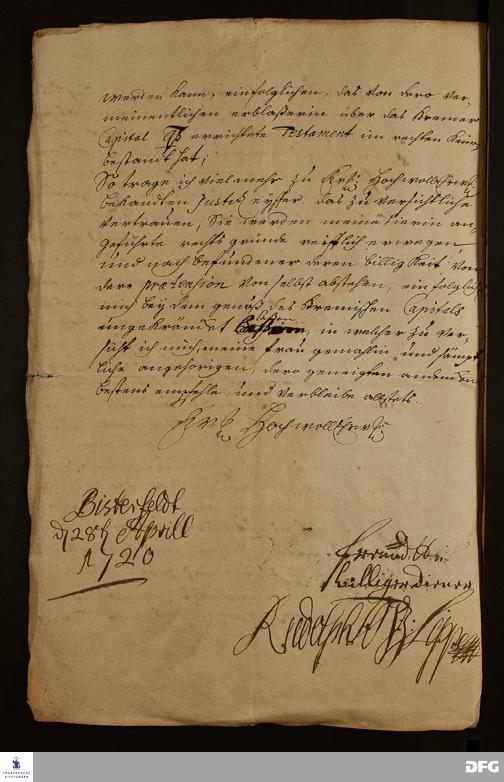 werden kann, einfolglichen, das von dero ver-
meinentlichen erblaßerin über das Bremer
Capital errichtete Testament im rechten keinen
bestandt hat;
So trage ich vielmehr zu Hochwollehrw.
bekandten Justiz eyffer das zu versichtliche
vertrauen, Sie werden meine hierin an
geführte rechts gründe reifflich erwegen
und nach befundener deren billigkeit von
dero prætension von selbst abstehen, einfolglich
mich bey dem genöß des Bremischen Capitals
ungekräncket laßen, in welcher zu ver-
sicht ich mich, meine frau gemahlin und sämpt-
liche angehörigen, dero geneigten andencken
bestens empfehle, und verbleibe allstets.
Hochwollehrw.
Bisterfeldt
d 28t Aprill
1720
freund
williger diener
Rudolph Lippe
FRANCKESCHE STIFTUNGEN
DFG